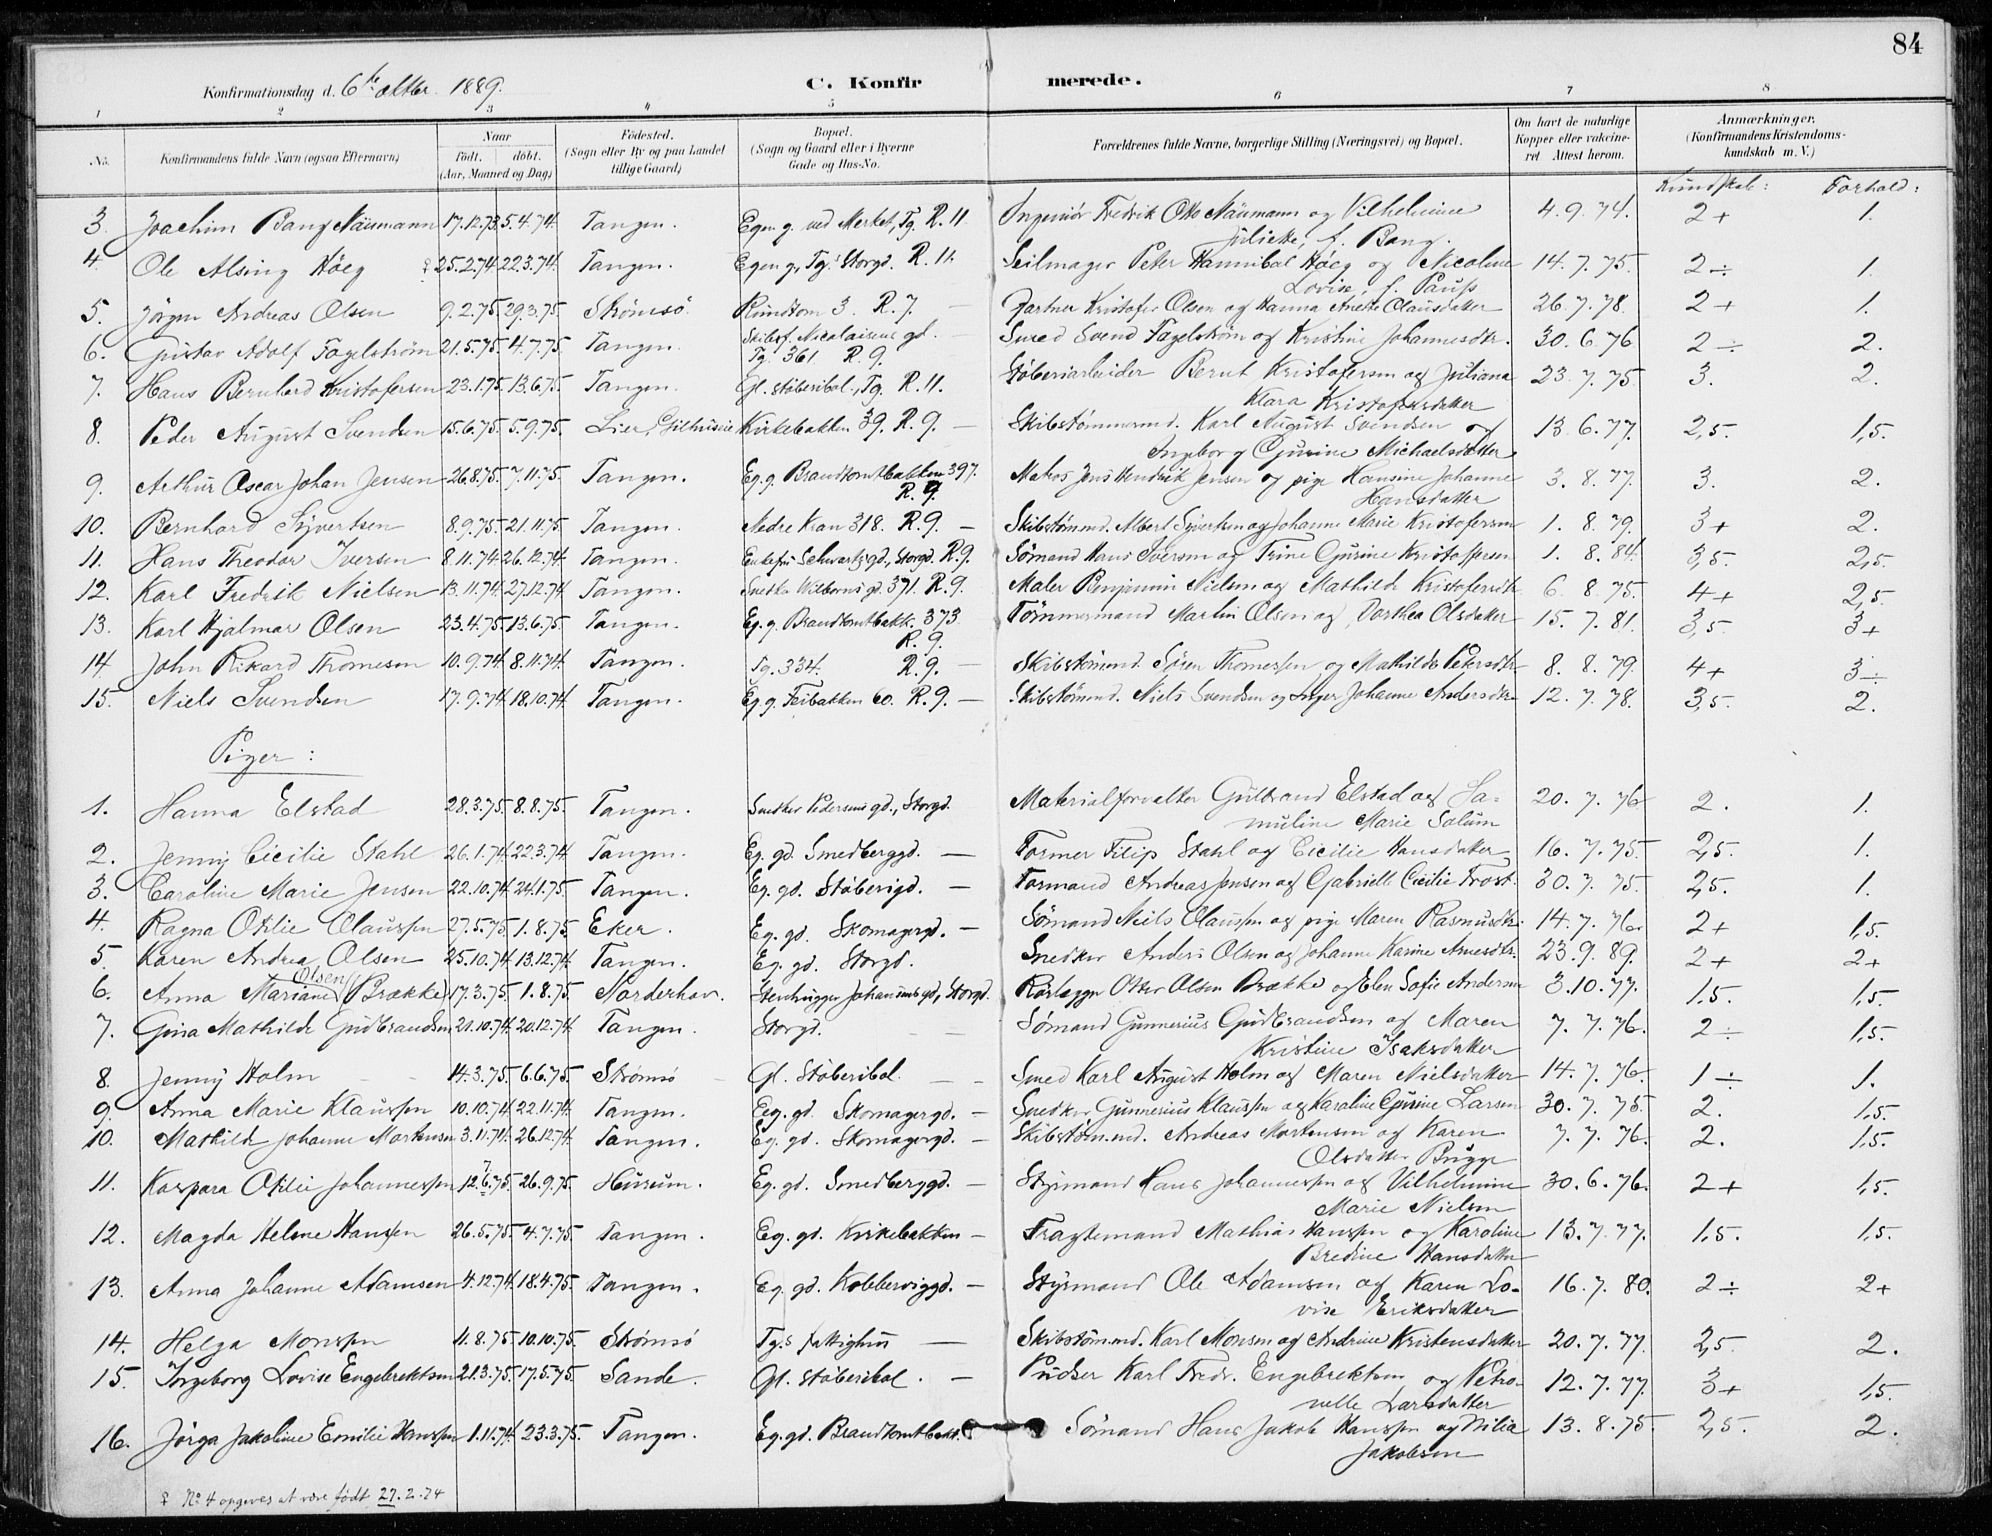 84
Konfirmationsdag d. 6te oktbr. 1889.
C. Konfirmerede.
1 2 3 4 5 6 7 8
No. Konfirmandens fulde Navn (ogsaa Efternavn) Naar født. døbt. (Aar, Maaned og Dag) Fødested. (Sogn eller By og paa Landet tillige Gaard) Bopæl. (Sogn og Gaard eller i Byerne Gade og Hus-No. Forældrenes fulde Navne, borgerlige Stilling (Næringsvei) og Bopæl. Om havt de naturlige Kopper eller vaccineret Attest herom. Anmærkninger. (Konfirmandens Kristendomskundskab m. V.)
Kundskab: Forhold:
3. Joachim Bang Näumann 17.12.73 5.4.74. Tangen. Egen g. ved Merket, Tg. R. 11. Ingeniör Fredrik Otto Näumann og Vilhelmine 4.9.74. 2+ 1.
Juliette, f. Bang.
4. Ole Alsing Höeg ♀ 25.2.74 22.3.74. Tangen. Egen g., Tg.s Storgd. R. 11. Seilmager Peter Hannibal Höeg og Nicoline 14.7.75. 2÷ 1.
Lovise, f. Pauss
5. Jörgen Andreas Olsen 9.2.75. 29.3.75. Strömsö Rundtom 3. R. 7. — Gartner Kristofer Olsen og Hanna Anette Clausdatter 26.7.78. 2+ 1.
6. Gustav Adolf Fagelström 21.5.75. 4.7.75. Tangen. Skibsf. Nicolaisens gd. — Smed Svend Fagelström og Kristine Johannesdtr. 30.6.76 2÷ 2.
Tg. 361 R. 9.
7. Hans Bernhard Kristofersen 23.1.75. 13.6.75. Tangen. Gl. Stöberibol., Tg. R. 11. Stöberiarbeider Bernt Kristofersen og Juliana 23.7.75 3. 2.
Klara Kristofersdatter
8. Peder August Svendsen 15.6.75. 5.9.75. Lier, Gilhusvie Kirkebakken 39. R. 9. — Skibstömmermd. Karl August Svendsen og 13.6.77. 2,5. 1,5.
Ingeborg Gurine Michaelsdatter
9. Arthur Oscar Johan Jensen 26.8.75. 7.11.75. Tangen. Eg. g. Brandtomtbakken 397. Matros Jens Hendrik Jensen og pige Hansine Johanne 3.8.77. 3. 2.
R. 9. Hansdatter
10. Bernhard Syvertsen 8.9.75. 21.11.75. Tangen. Nedre Kran 318. R. 9. — Skibstömmd. Albert Syvertsen og Johanne Marie Kristofersen 1.8.79. 3+ 2.
11. Hans Theodor Iversen 8.11.74 26.12.74. Tangen. Enkefru Schwartz gd., Storgd. R. 9. Sömand Hans Iversen og Trine Gurine Kristoffersen 1.8.84. 3,5. 2,5.
12. Karl Fredrik Nielsen 13.11.74. 27.12.74 Tangen. Snedker Wilborns gd. 371. R. 9. Maler Benjamin Nielsen og Mathilde Kristofersdtr 6.8.75. 4+ 2,5.
13. Karl Hjalmar Olsen 23.4.75. 13.6.75. Tangen. Eg. g. Brandtomtbakk. 373 Tömmermand Martin Olsen og Dorthea Olsdatter 15.7.81. 3,5. 3+
R. 9.
14. John Rikard Thomesen 10.9.74 8.11.74. Tangen. Tg. 334. R. 9. — Skibstömmd. Sören Thomessen og Mathilde Petersdtr 8.8.79. 4+ 3÷
15. Niels Svendsen 17.9.74 18.10.74. Tangen. Eg. g. Feibakken 60. R. 9. — Skibstömmd. Niels Svendsen og Inger Johanne Andersdtr 12.7.78. 3,5. 2.
Piger:
1. Hanna Elstad 28.3.75. 8.8.75. Tangen. Snedker Pedersens gd., Storgd. Materialforvalter Gulbrand Elstad og Sa- 20.7.76 2. 1.
muline Marie Solum
2. Jenny Cicilie Stahl 26.1.74. 22.3.74 Tangen. Eg. gd. Smedberggd. — Former Filip Stahl og Cicilie Hansdatter 16.7.75. 2,5. 1.
3. Caroline Marie Jensen 22.10.74. 24.1.75. Tangen. Eg. gd. Stöberigd. — Formand Andreas Jensen og Gabrielle Cicilie Frost. 30.7.75. 2,5. 1.
4. Ragna Otilie Claussen 27.5.75. 1.8.75. Eker. Eg. gd. Skomagergd. — Sömand Niels Claussen og pige Maren Rasmusdtr. 14.7.76. 2+ 1,5.
5. Karen Andrea Olsen 25.10.74 13.12.74. Tangen. Eg. gd. Storgd. Snedker Anders Olsen og Johanne Karine Arnesdtr. 23.9.89. 2+ 2+
Olsen
6. Anna Mariane (Brække) 17.3.75. 1.8.75. Norderhov. Stenhugger Johansens gd., Storgd. Rörlægger Otter Olsen Brække og Elen Sofie Andersen 3.10.77. 1,5. 1,5.
7. Gina Mathilde Gudbrandsen 21.10.74 20.12.74. Tangen. Storgd. Sömand Gunnerius Gudbrandsen og Maren 7.7.76. 2÷ 1,5.
Kristine Isaksdatter
8. Jenny Holm 14.3.75. 6.6.75. Strömsö Gl. Stöberibol. — Smed Karl August Holm og Maren Nielsdatter 14.7.76. 1÷ 1.
9. Anna Marie Klaussen 10.10.74. 22.11.74. Tangen. Eg. gd. Skomagergd. — Snedker Gunnerius Klaussen og Karoline Gurine Larsen 30.7.75. 2. 1,5.
10. Mathilde Johanne Mortensen 3.11.74. 26.12.74. Tangen. Eg. gd. Skomagergd. — Skibstömmd. Andreas Mortensen og Karen 7.7.76. 2. 1,5.
Olsdatter Brygge
11. Kaspara Otilie Johannessen 12.6.75. 26.9.75. Hurum. Eg. gd. Smedberggd. — Styrmand Hans Johannessen og Vilhelmine 30.6.76. 2+ 1,5.
Marie Nielsen
12. Magda Helene Hanssen 26.5.75. 4.7.75. Tangen. Eg. gd. Kirkebakken — Fragtemand Mathias Hanssen og Karoline 13.7.77. 1,5. 1,5.
Bredine Hansdatter
13. Anna Johanne Adamsen 4.12.74. 18.4.75. Tangen. Eg. gd. Kobberviggd. — Styrmand Ole Adamsen og Karen Lo- 16.7.80. 2÷ 2+
vise Eriksdatter
14. Helga Monssen 11.8.75. 10.10.75. Strömsö Tg.s fattighus — Skibstömmd. Karl Monsen og Andrine Kristensdatter 20.7.77. 2,5. 2.
15. Ingeborg Lovise Engebrektsen 21.3.75. 17.5.75. Sande. Gl. Stöberibol. — Pudser Karl Fredr. Engebrektsen og Petro- 12.7.77. 3+ 1,5.
nelle Larsdatter
16. Jörga Jakobine Emilie Hanssen 1.11.74. 23.3.75. Tangen. Eg. gd. Brandtomtbakk. Sömand Hans Jakob Hanssen og Nilia 13.8.75. 2,5. 2.
Jakobsen
♀ No 4 opgives at være födt 27.2.74